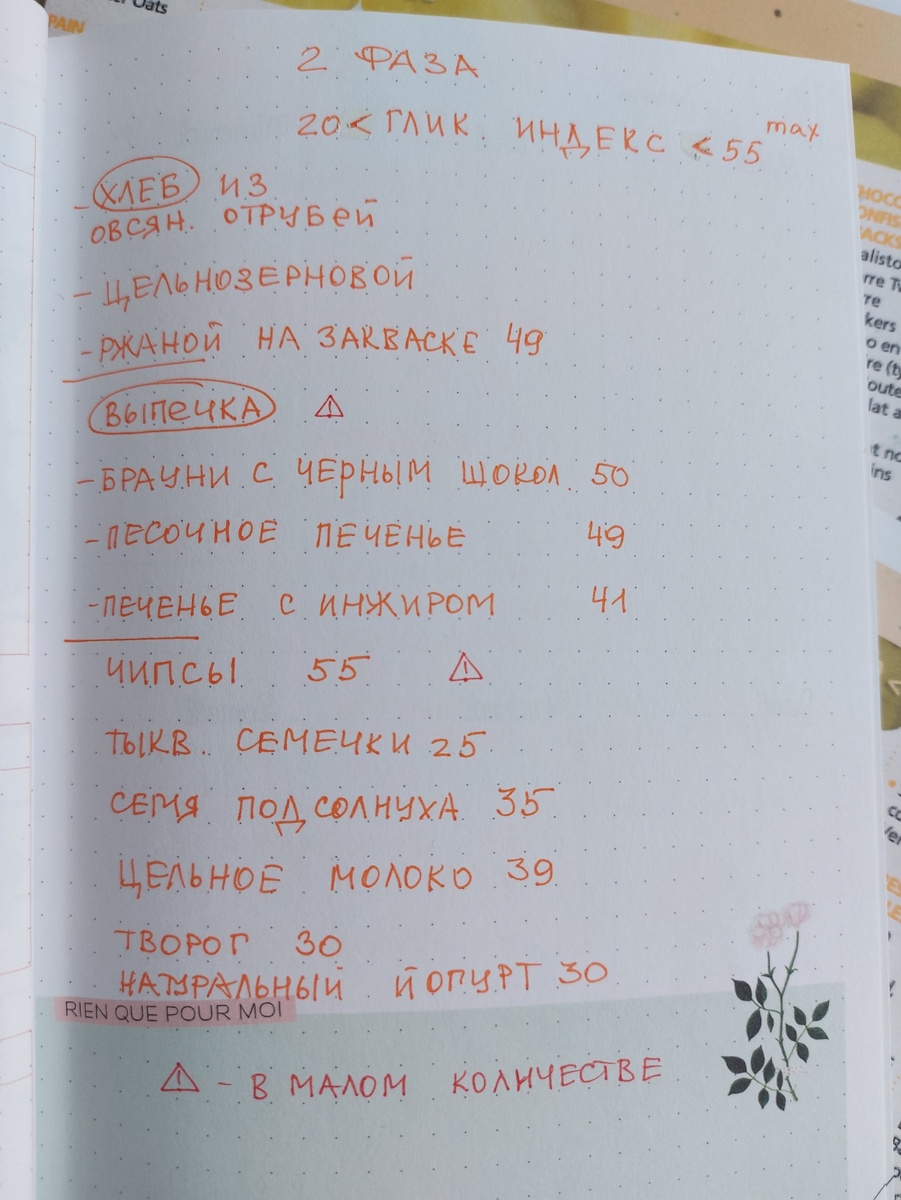 r Oats
PAIN
2 ФАЗА
20 < ГЛИК. ИНДЕКС < 55 max
- ХЛЕБ ИЗ
ОВСЯН. ОТРУБЕЙ
- ЦЕЛЬНОЗЕРНОВОЙ
- РЖАНОЙ НА ЗАКВАСКЕ 49
ВЫПЕЧКА ⚠
- БРАУНИ С ЧЕРНЫМ ШОКОЛ. 50
- ПЕСОЧНОЕ ПЕЧЕНЬЕ 49
- ПЕЧЕНЬЕ С ИНЖИРОМ 41
ЧИПСЫ 55 ⚠
ТЫКВ. СЕМЕЧКИ 25
СЕМЯ ПОДСОЛНУХА 35
ЦЕЛЬНОЕ МОЛОКО 39
ТВОРОГ 30
НАТУРАЛЬНЫЙ ЙОГУРТ 30
RIEN QUE POUR MOI
⚠ - В МАЛОМ КОЛИЧЕСТВЕ